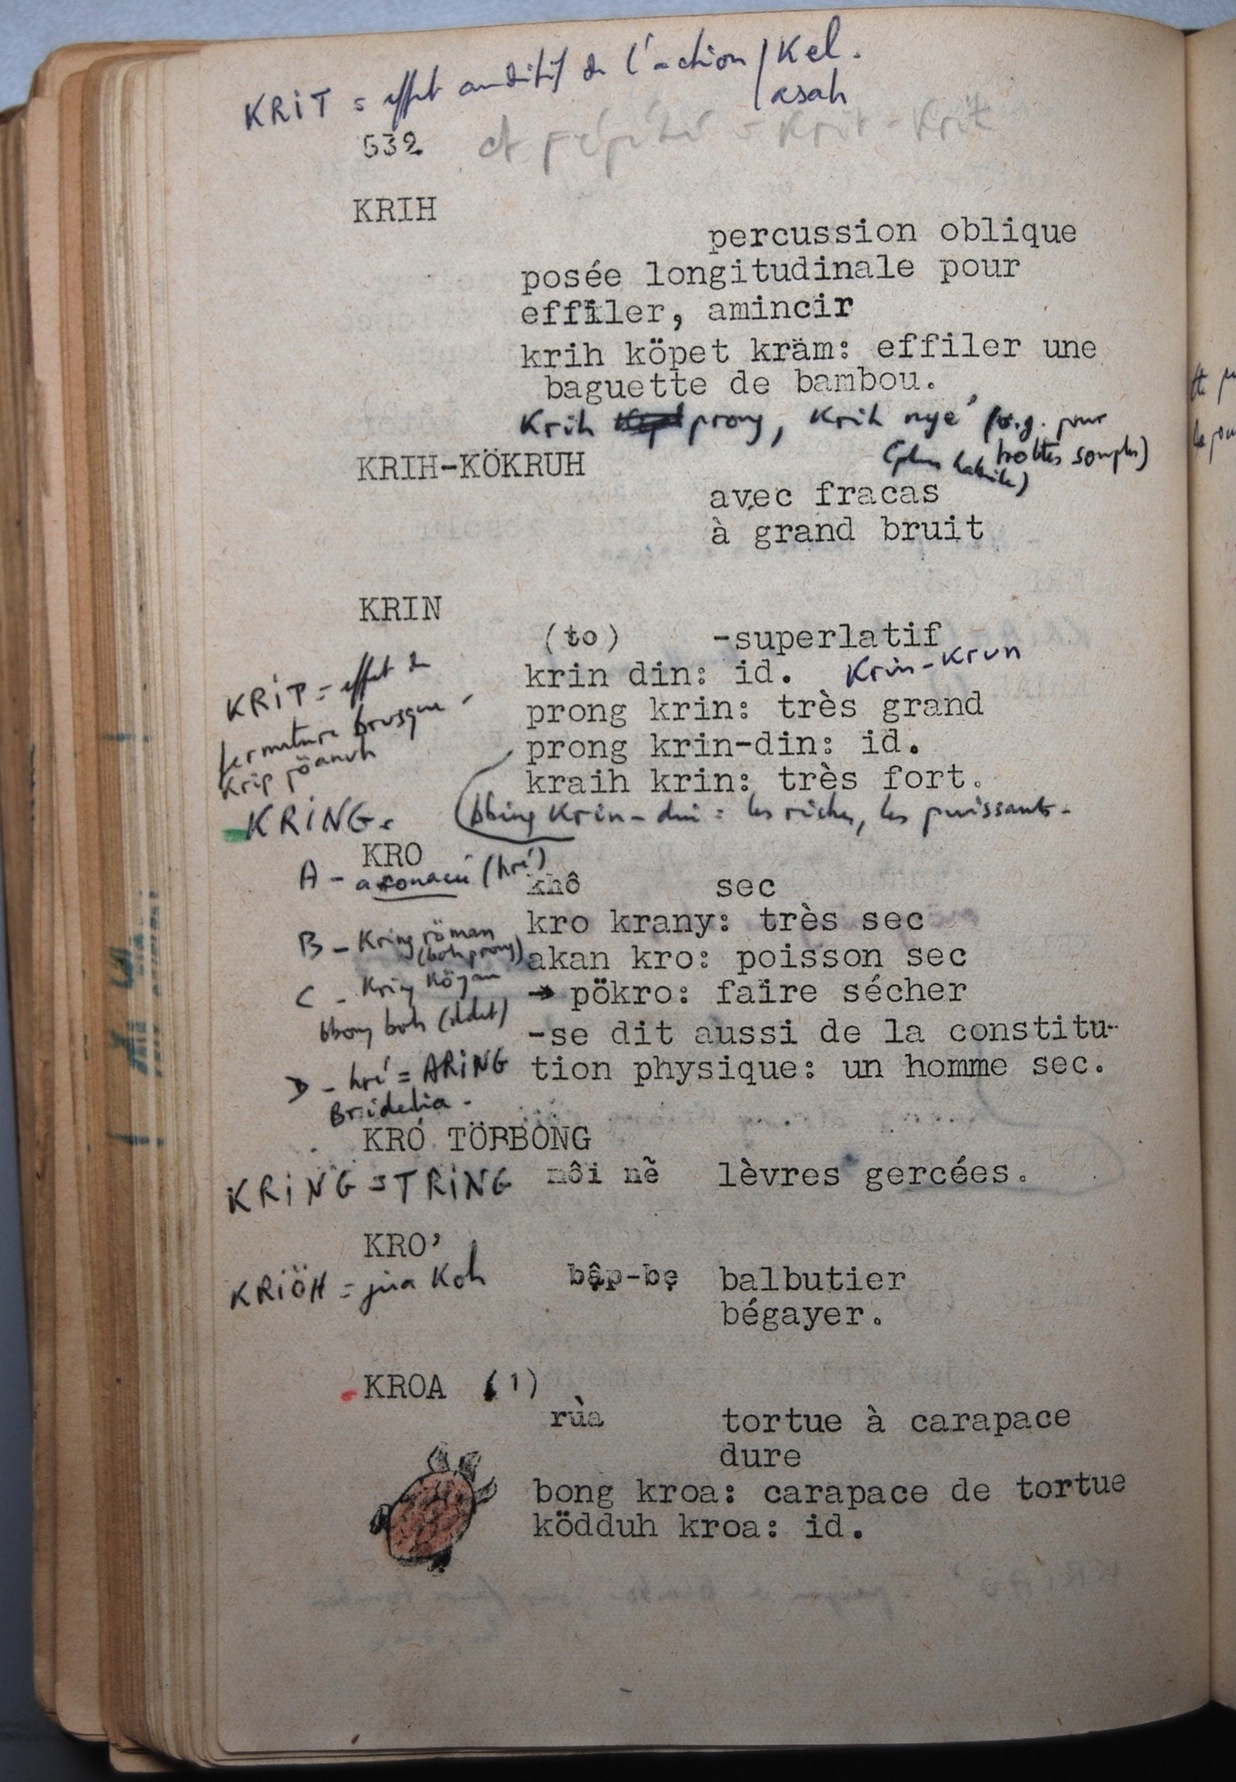 KRIT = effet auditif de l'action / Kel.
asah
532 et répété = Krit-Krit
KRIH
percussion oblique
posée longitudinale pour
effiler, amincir
krih köpet kräm: effiler une
baguette de bambou.
Krih prong, Krih nye' (v.g. pour
hottes souples)
KRIH-KÖKRUH
avec fracas
à grand bruit
KRIN
(to) -superlatif
krin din: id. Krin-Krun
prong krin: très grand
prong krin-din: id.
kraih krin: très fort.
KRIP = effet de
fermeture brusque
Krip pöanuh
bbing Krin-din = les riches, les puissants.
KRING.
KRO
khô sec
kro krany: très sec
akan kro: poisson sec
→ pökro: faire sécher
-se dit aussi de la constitu-
tion physique: un homme sec.
A - (hré)
B - Kring röman
(boh prong)
C - Kring Kögan
bbong boh
D - hré = ARING
Bridelia.
KRO TÖBBONG
nôi nẽ lèvres gercées.
KRING = TRING
KRO'
bập-bẹ balbutier
bégayer.
KRIÖH = jua Koh
KROA (1)
rùa tortue à carapace
dure
bong kroa: carapace de tortue
ködduh kroa: id.